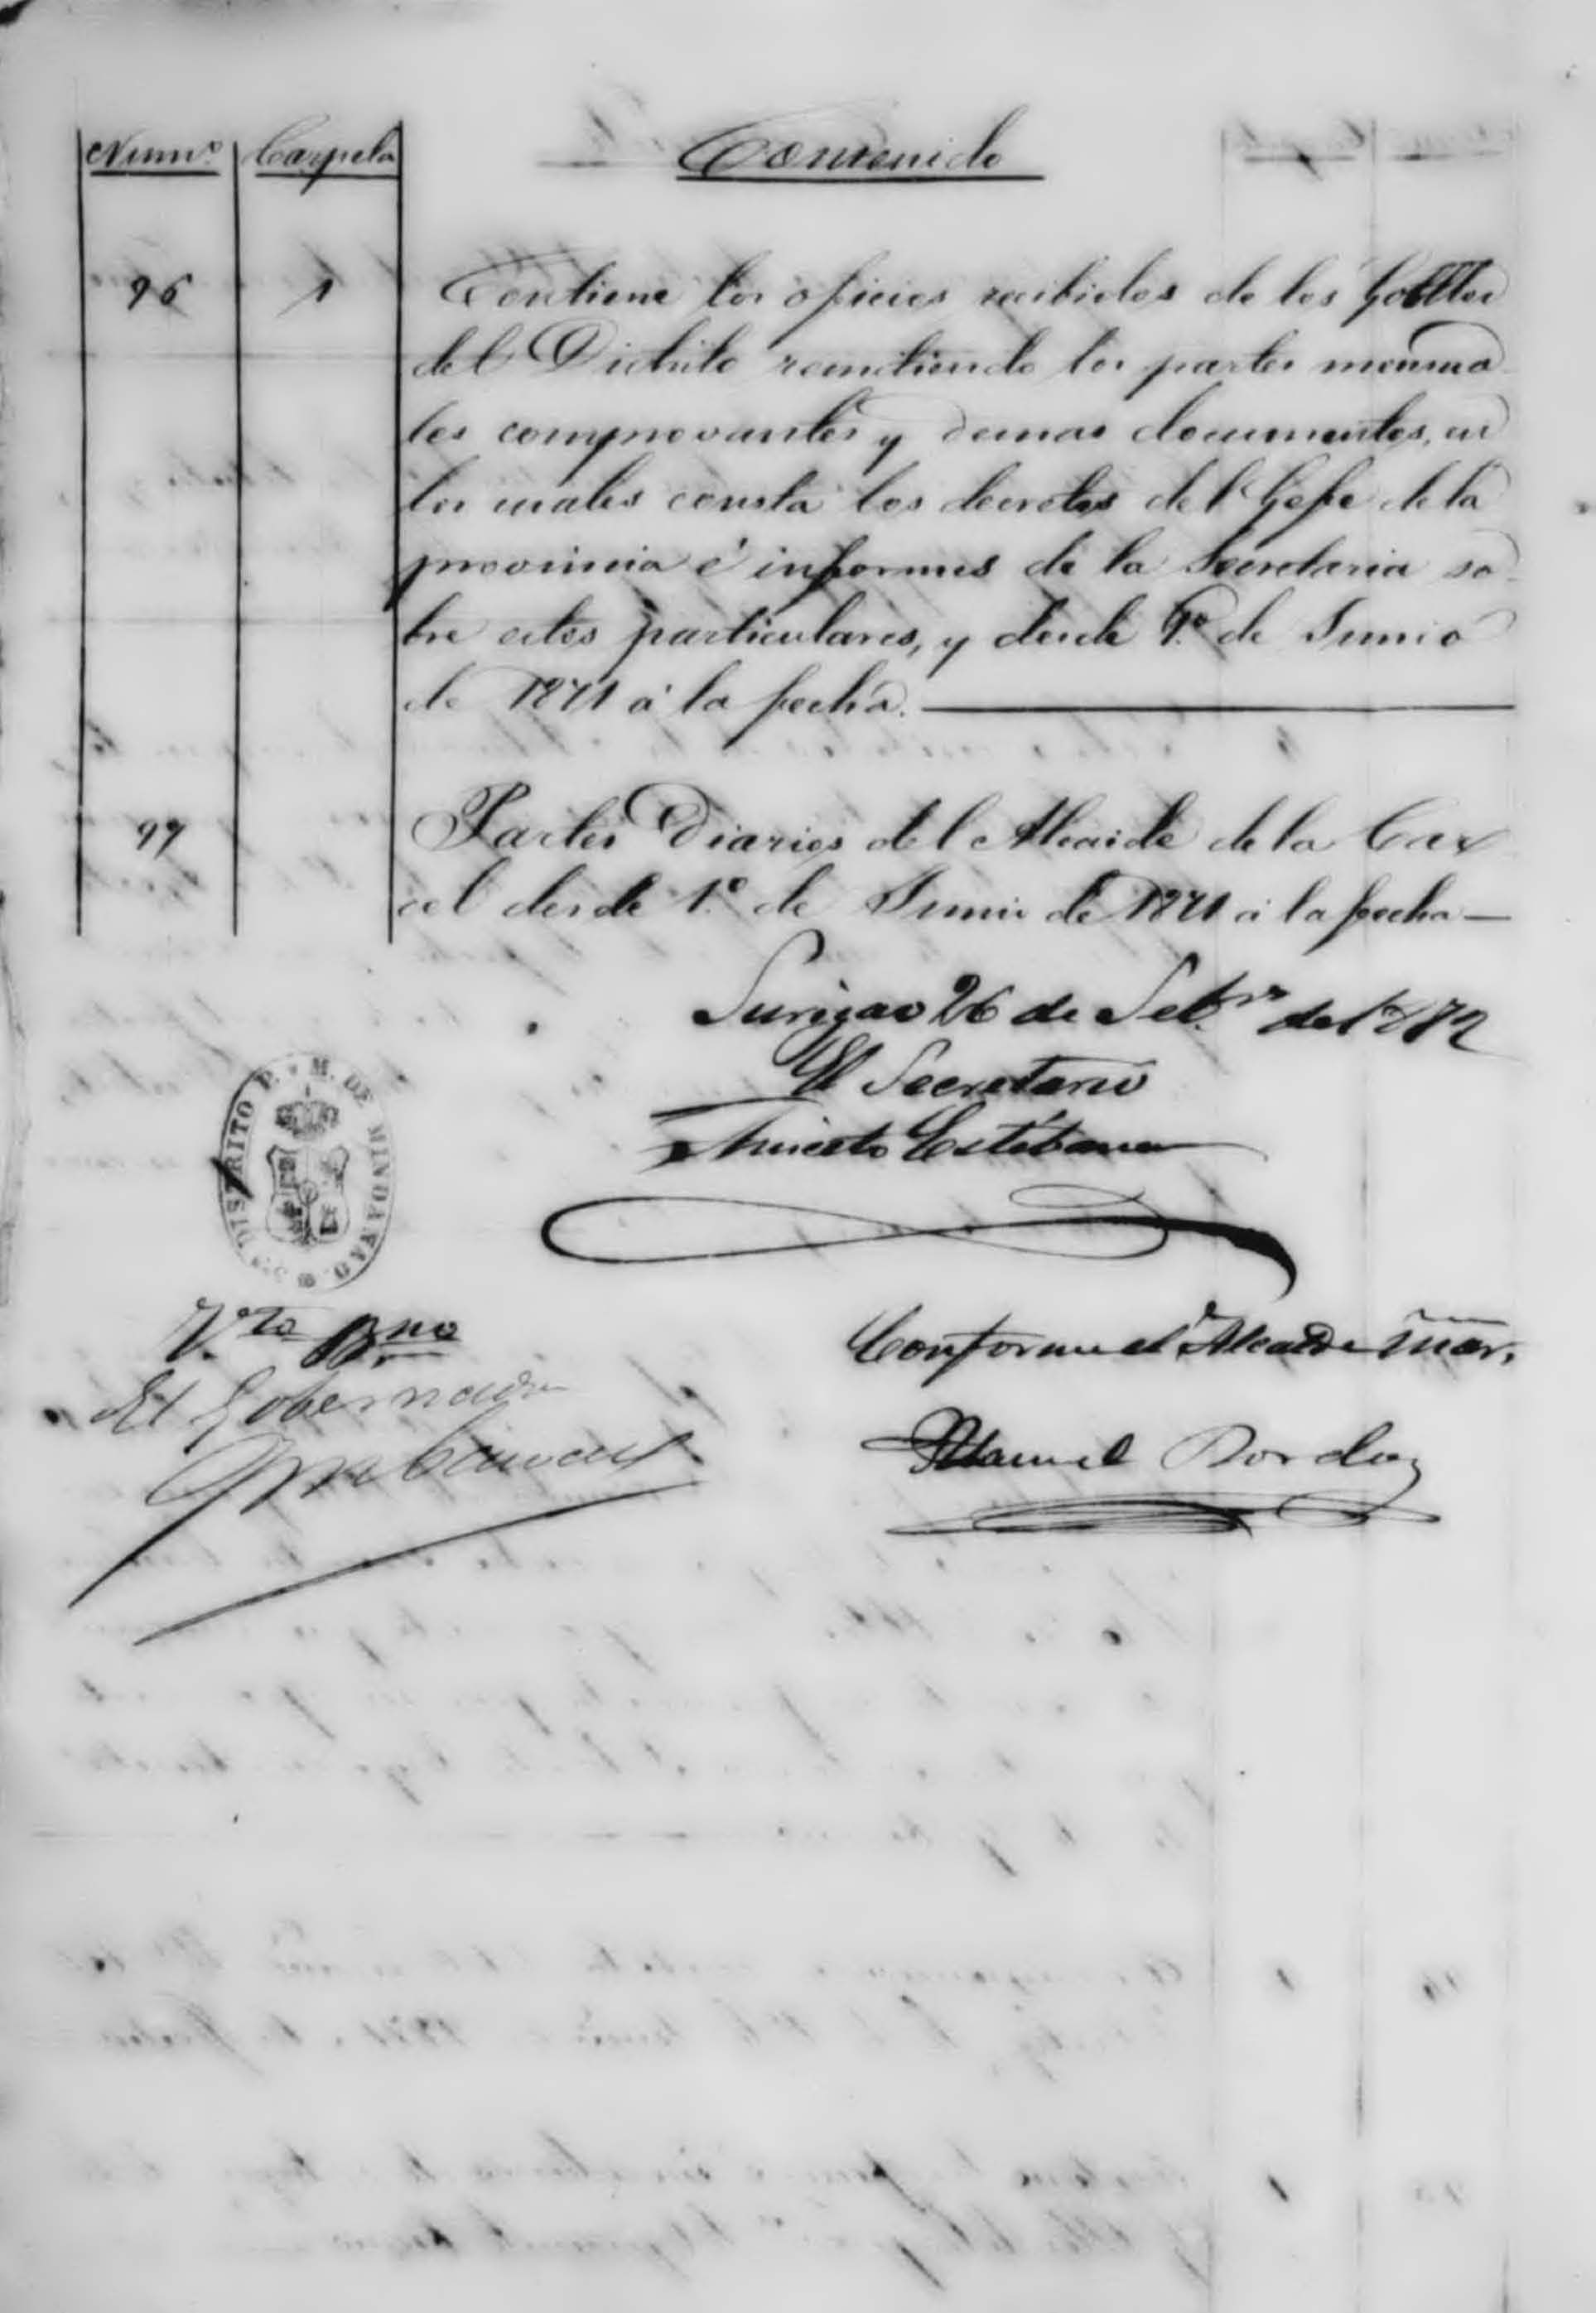 Numº Carpeta Contenido
96 1 Contiene los oficios recibidos de los Gobllos
del Distrito remitiendo los partes mensua
les comprovantes y demas documentos, en
los cuales consta los decretos del Gefe de la
provincia é informes de la Secretaria so
bre estos particulares, y desde 1º de Junio
de 1871 á la fecha.
97 Partes Diarios del Alcaide de la Car
cel desde 1.º de Junio de 1871 á la fecha
Surigao 26 de Setre de 1872
El Secretario
Aniceto Estéban
DISTRITO P. M. DE MINDANAO
V.to B.no
El Gobernador
Conforme el Alcalde mar.
Manuel Bordas